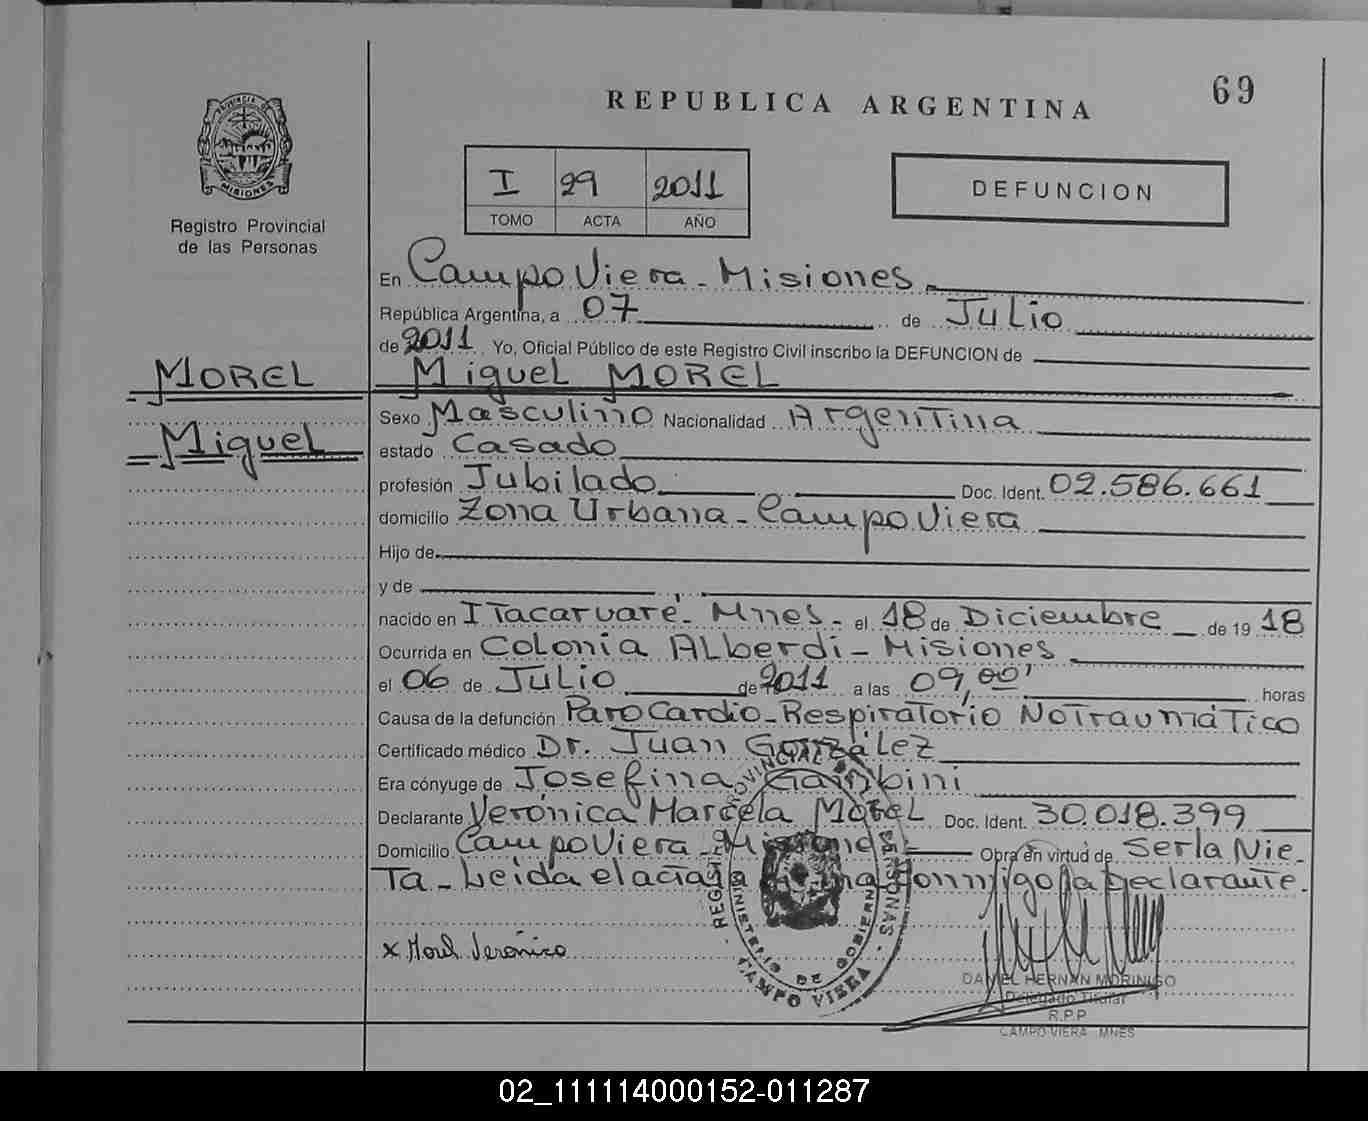 69
REPUBLICA ARGENTINA
PROVINCIA DE
MISIONES
Registro Provincial
de las Personas
I 29 2011
TOMO ACTA AÑO
DEFUNCION
En Campo Viera - Misiones
República Argentina, a 07 de Julio
de 2011 Yo, Oficial Público de este Registro Civil inscribo la DEFUNCION de
MOREL
Miguel MOREL
Miguel
Sexo Masculino Nacionalidad Argentina
estado Casado
profesión Jubilado Doc. Ident. 02.586.661
domicilio Zona Urbana - Campo Viera
Hijo de
y de
nacido en ITacaruaré - Mnes - el 18 de Diciembre de 19 18
Ocurrida en Colonia ALberdi - Misiones
el 06 de Julio de 2011 a las 09,00' horas
Causa de la defunción Paro Cardio-Respiratorio No Traumático
Certificado médico Dr. Juan González
Era cónyuge de Josefina Gambini
Declarante Verónica Marcela Morel Doc. Ident. 30.018.399
Domicilio Campo Viera - Misiones Obra en virtud de Ser la Nie-
Ta - Leída el acta la firma conmigo la Declarante.
x Morel Verónica
REGISTRO PROVINCIAL DE LAS PERSONAS
MINISTERIO DE GOBIERNO
CAMPO VIERA
DANIEL HERNAN MORINIGO
Delegado Titular
R.P.P
CAMPO VIERA MNES
02_111114000152-011287